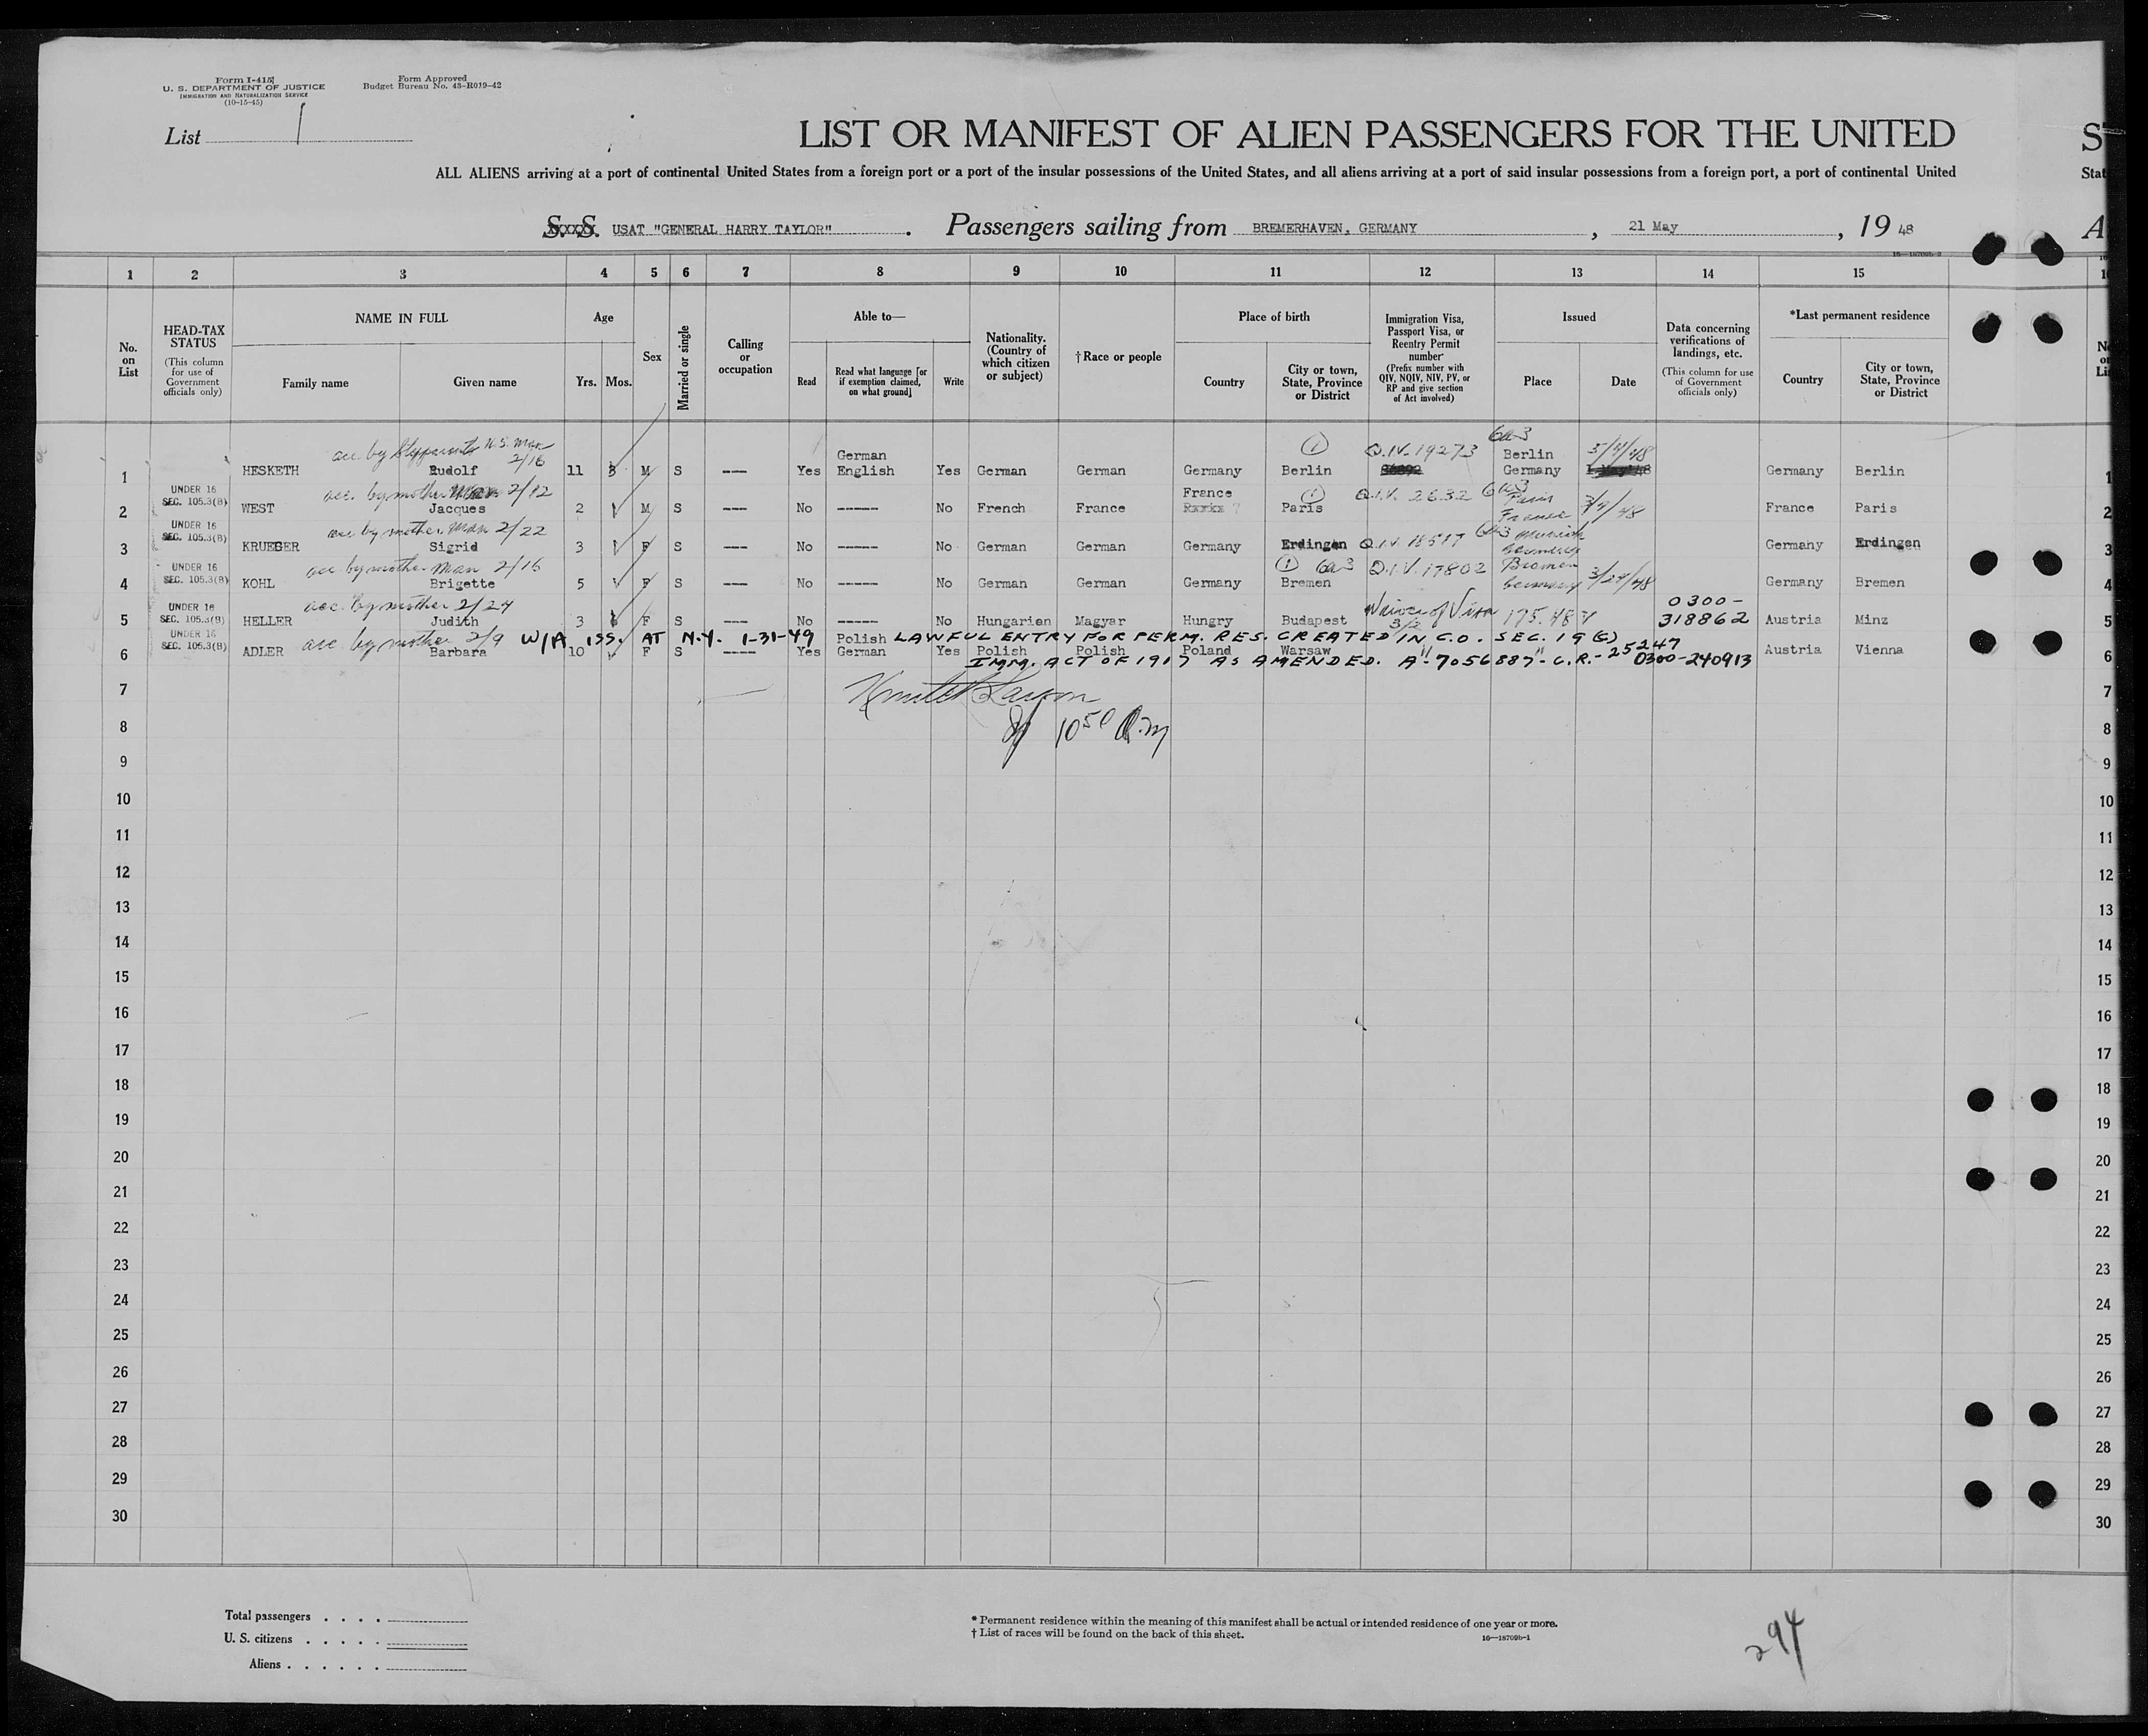 Form I-415
U. S. DEPARTMENT OF JUSTICE
IMMIGRATION AND NATURALIZATION SERVICE
(10-15-45)
Form Approved
Budget Bureau No. 43-R019-42
List 1
LIST OR MANIFEST OF ALIEN PASSENGERS FOR THE UNITED ST
ALL ALIENS arriving at a port of continental United States from a foreign port or a port of the insular possessions of the United States, and all aliens arriving at a port of said insular possessions from a foreign port, a port of continental United Stat
S. S. USAT "GENERAL HARRY TAYLOR". Passengers sailing from BREMERHAVEN, GERMANY, 21 May, 19 48 A
1 2 3 4 5 6 7 8 9 10 11 12 13 14 15
No. on List
HEAD-TAX STATUS (This column for use of Government officials only)
NAME IN FULL Family name Given name
Age Yrs. Mos.
Sex
Married or single
Calling or occupation
Able to— Read Read what language [or if exemption claimed, on what ground] Write
Nationality. (Country of which citizen or subject)
†Race or people
Place of birth Country City or town, State, Province or District
Immigration Visa, Passport Visa, or Reentry Permit number (Prefix number with QIV, NQIV, NIV, PV, or RP and give section of Act involved)
Issued Place Date
Data concerning verifications of landings, etc. (This column for use of Government officials only)
*Last permanent residence Country City or town, State, Province or District
acc. by 2/16 German 1 Q.I.V. 19273 6a3 Berlin
1 HESKETH Rudolf 11 3 M S --- Yes English Yes German German Germany Berlin Germany Germany Berlin 1
UNDER 16 SEC. 105.3(B) acc. by mother 2/12 France 1 Q.I.V. 2632 6a3 Paris
2 WEST Jacques 2 M S --- No ----- No French France Paris France France Paris 2
UNDER 16 SEC. 105.3(B) acc. by mother Man 2/22 6a3 Munich
3 KRUEGER Sigrid 3 F S --- No ----- No German German Germany Erdingen Q.I.V. 18517 Germany Germany Erdingen 3
UNDER 16 SEC. 105.3(B) acc. by mother Man 2/16 1 6a3 Q.I.V. 17802 Bremen
4 KOHL Brigette 5 F S --- No ----- No German German Germany Bremen Germany 3/24/48 Germany Bremen 4
UNDER 16 SEC. 105.3(B) acc. by mother 2/24 Waiver of Visa 0300-
5 HELLER Judith 3 F S --- No ----- No Hungarian Magyar Hungry Budapest 318862 Austria Minz 5
UNDER 16 SEC. 105.3(B) acc. by mother 2/9 W/A ISS. AT N.Y. 1-31-49 Polish LAWFUL ENTRY FOR PERM. RES. CREATED IN C.O. SEC. 19(c)
6 ADLER Barbara 10 F S ---- Yes German Yes Polish Polish Poland Warsaw " " Austria Vienna 6
IMM. ACT OF 1917 AS AMENDED. A-7056887-C.R.-25247
0300-240913
7 7
10 50 A.m
8 8
9 9
10 10
11 11
12 12
13 13
14 14
15 15
16 16
17 17
18 18
19 19
20 20
21 21
22 22
23 23
24 24
25 25
26 26
27 27
28 28
29 29
30 30
Total passengers . . . .
U. S. citizens . . . . .
Aliens . . . . . .
* Permanent residence within the meaning of this manifest shall be actual or intended residence of one year or more.
† List of races will be found on the back of this sheet.
16—18709b-1
294